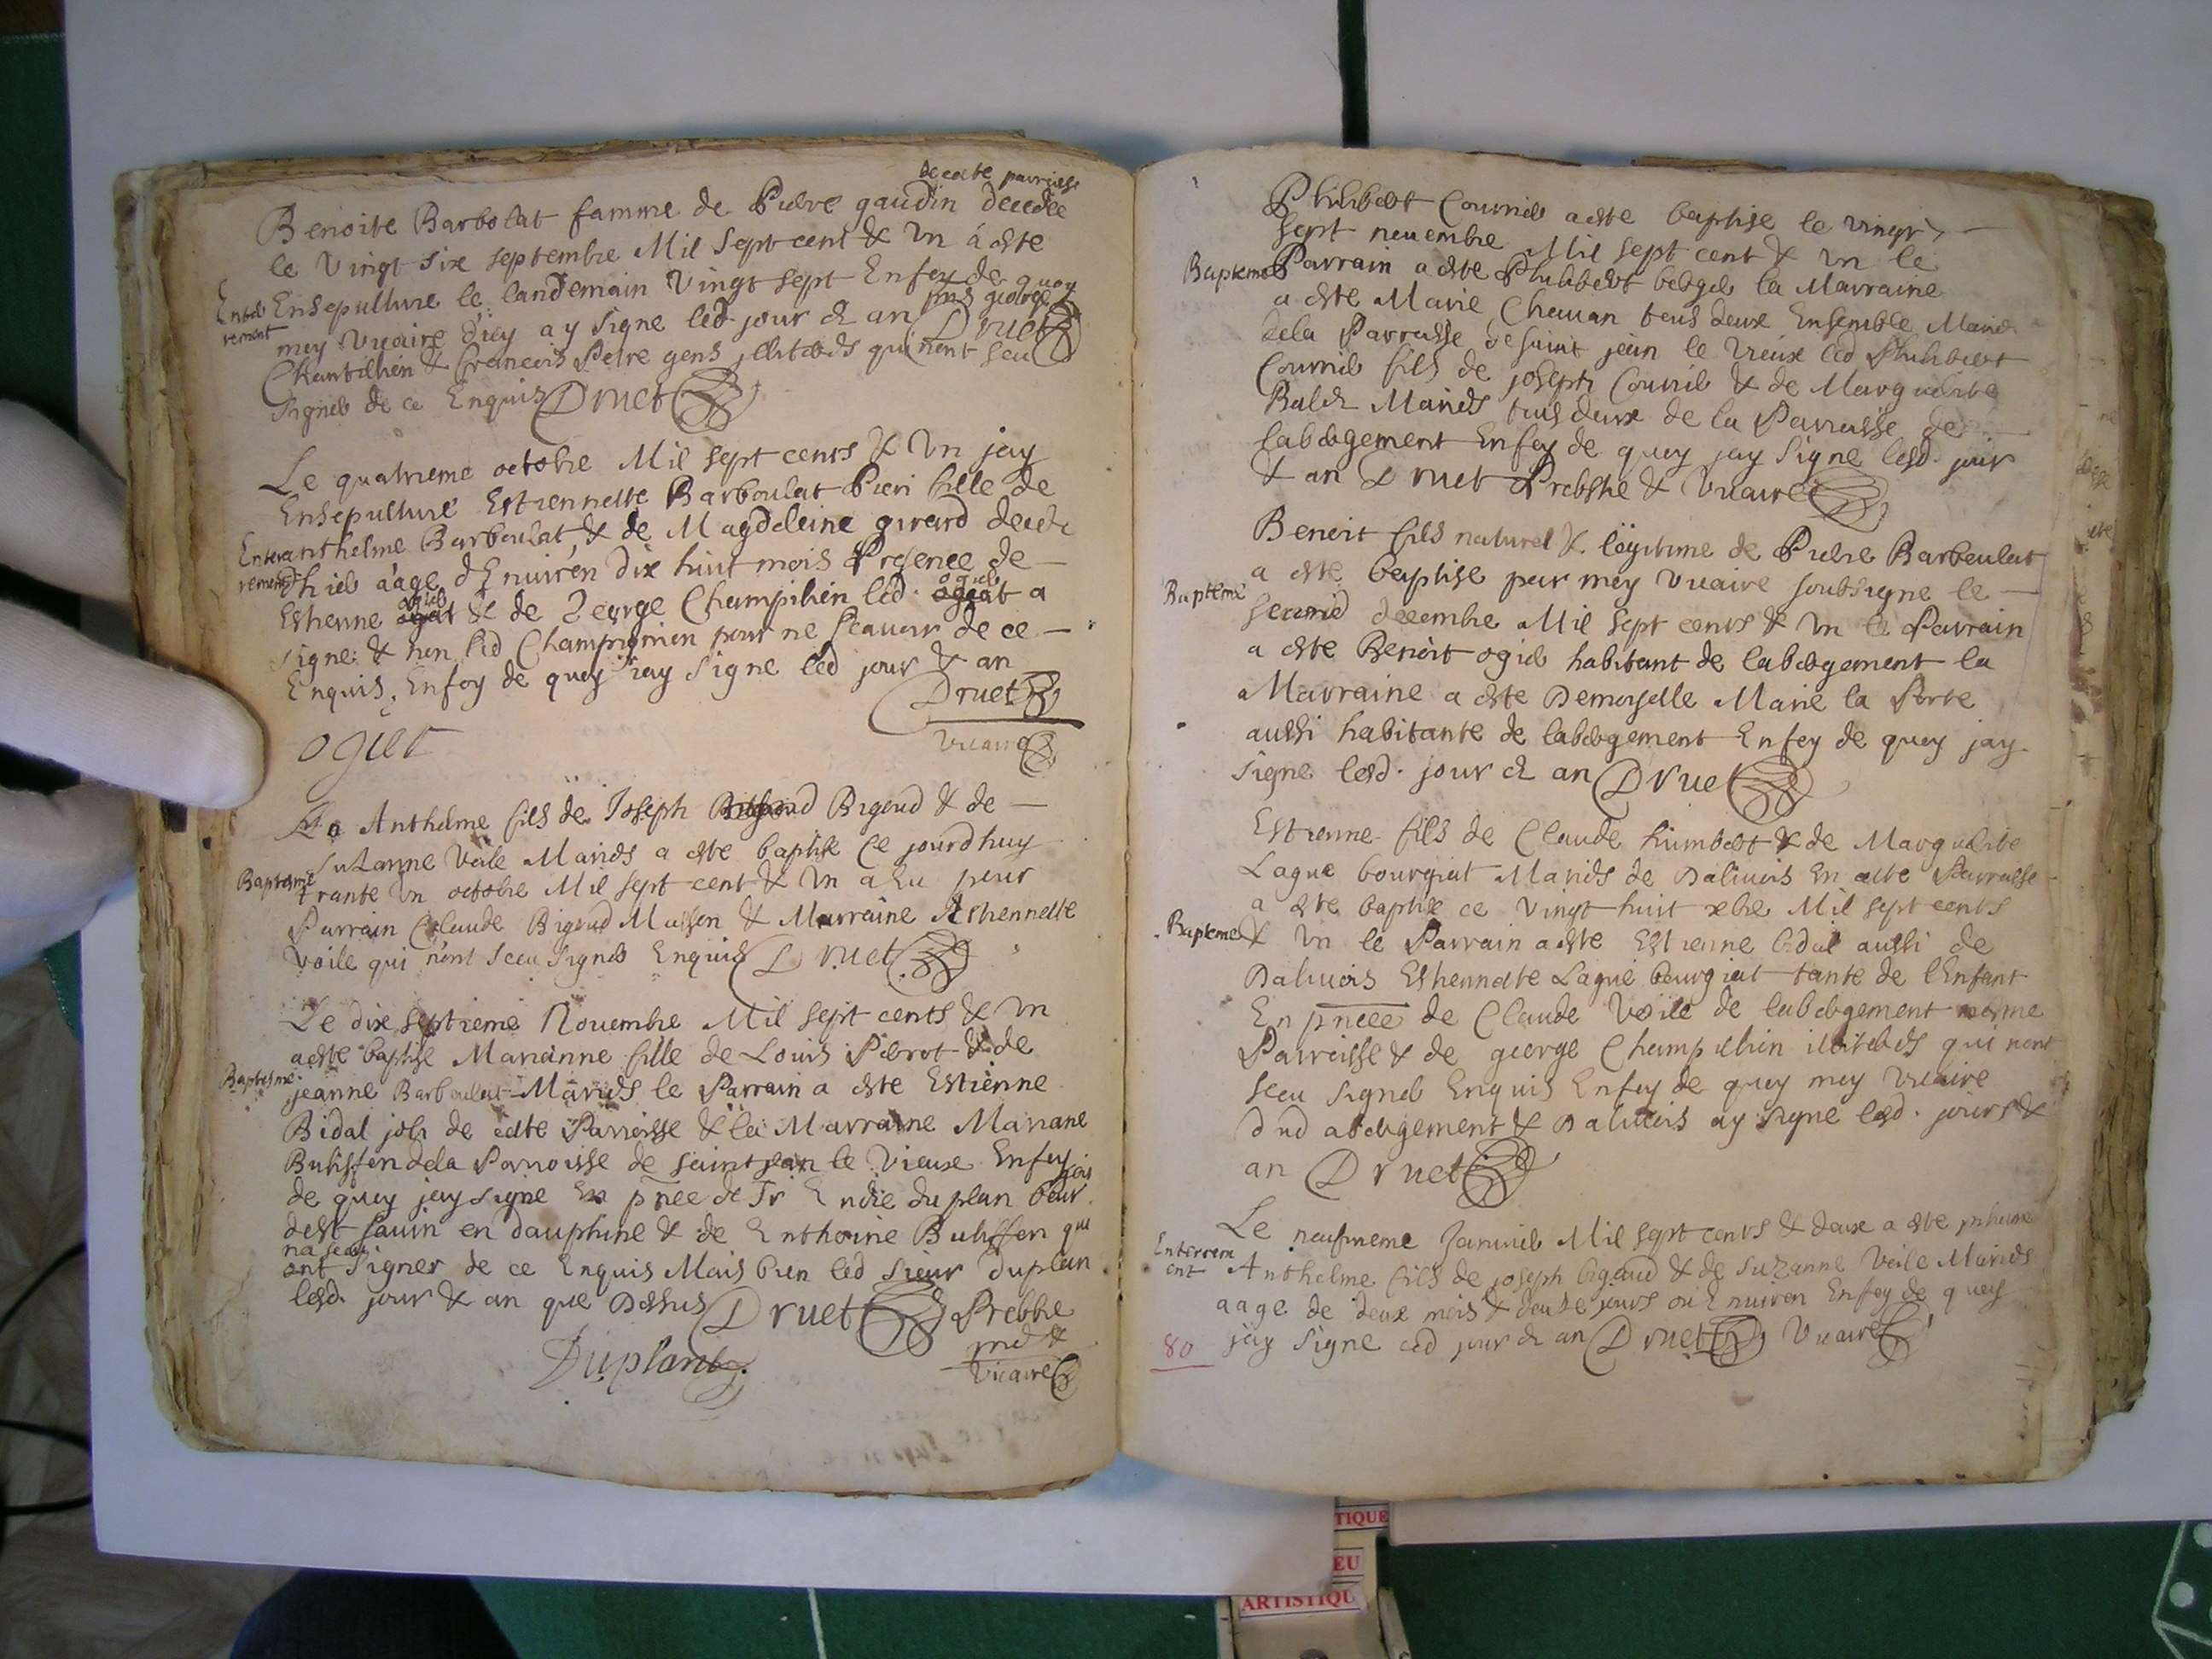 de ceste parroisse
Benoite Barbolat famme de Pierre gaudin decedee
le Vingt six septembre Mil Sept cent & Vn á este
Ensepulture le landemain Vingt sept Enfoy de quoy
Enter
rement
moy Vicaire d'icy ay Signe led jour et an Druet
Chantilhin & francois Petre gens jlliterés qui n'ont sceu
signer de ce Enquis Druet
Le quatrieme octobre Mil sept cents & Vn jay
Ensepulturé Estiennette Barboulat fille de
Enter
rement
anthelme Barboulat, & de Magdeleine girard decede
áage d'Enuirón dix huit mois Presence de
ogier ogier
Estienne & de George Champihin led. a
signe & non led Champignien pour ne scauoir de ce
Enquis, Enfoy de quoy jay Signe led jour & an
Druet
Vicaire
ogier
Anthelme fils de Joseph Bigoud & de
Suzanne Voile Mariés a este baptise Ce jourdhuy
Baptesme
trante Vn octobre Mil sept cent & Vn a Eu pour
Parrain Claude Bigoud Masson & Marraine Esthennette
Voile qui n'ont sceu signer Enquis Druet
Le dix septieme Nouembre Mil sept cents & Vn
a este baptise Marianne fille de Louis Pierot & de
Baptesme
jeanne Barboulat Mariés le Parrain a este Estienne
Bidal de ceste Parroisse & la Marraine Mariane
Buhiffon dela Parroisse de saint jean le Vieux Enfoy
de quoy jay signe En pnce de du plan
en dauphine & de Enthoine Buhiffon qui
signer de ce Enquis Mais bien led sieur Duplan
lesd. jour & an que Dessus Druet Prebtre
&
Vicaire
Duplan
Philibert Cournil a este baptise le Vingt
sept nouembre Mil sept cent & Vn le
Bapteme
Parrain a este Philibert la Marraine
a este Marie Chauan tous deux Ensemble Mariés
dela Parroisse de saint jean le Vieux led Philibert
Cournil fils de joseph Cournil & de Marguerite
Mariés tous deux de la Parroisse de
labergement Enfoy de quoy jay Signe lesd. jour
& an Druet Prebstre & Vicaire
Benoit fils naturel & legitime de Pierre Barboulat
a este baptise par moy Vicaire soubsigne le
Bapteme
second decembre Mil sept cents & Vn le Parrain
a este Benoit ogier habitant de labergement la
Marraine a este Demoyselle Marie la Porte
aussi habitante de labergement Enfoy de quoy jay
signe lesd. jour et an Druet
Estienne fils de Claude humbert & de Marguerite
Lague bourgiat Mariés de Daliuois En ceste Parroisse
a este baptise ce Vingt huit xbre Mil sept cents
Bapteme
& Vn le Parrain a este Estienne bidal aussi de
Daliuois Esthennette Lague bourgiat tante de l'Enfant
En pnce de Claude Voile de labergement mesme
Parroisse & de george Champihin illiterés qui n'ont
sceu signer Enquis Enfoy de quoy moy Vicaire
dud abergement & Daliuois ay signe lesd. jours &
an Druet
Le neufuieme januier Mil sept cents & deux a este
Enterrem
ent
Anthelme fils de joseph bigoud & de suzanne Voile Mariés
aage de deux mois & jours ou Enuiron Enfoy de quoy
jay signe jour et an Druet Vicaire
80
TIQUE
EU
ARTISTIQU